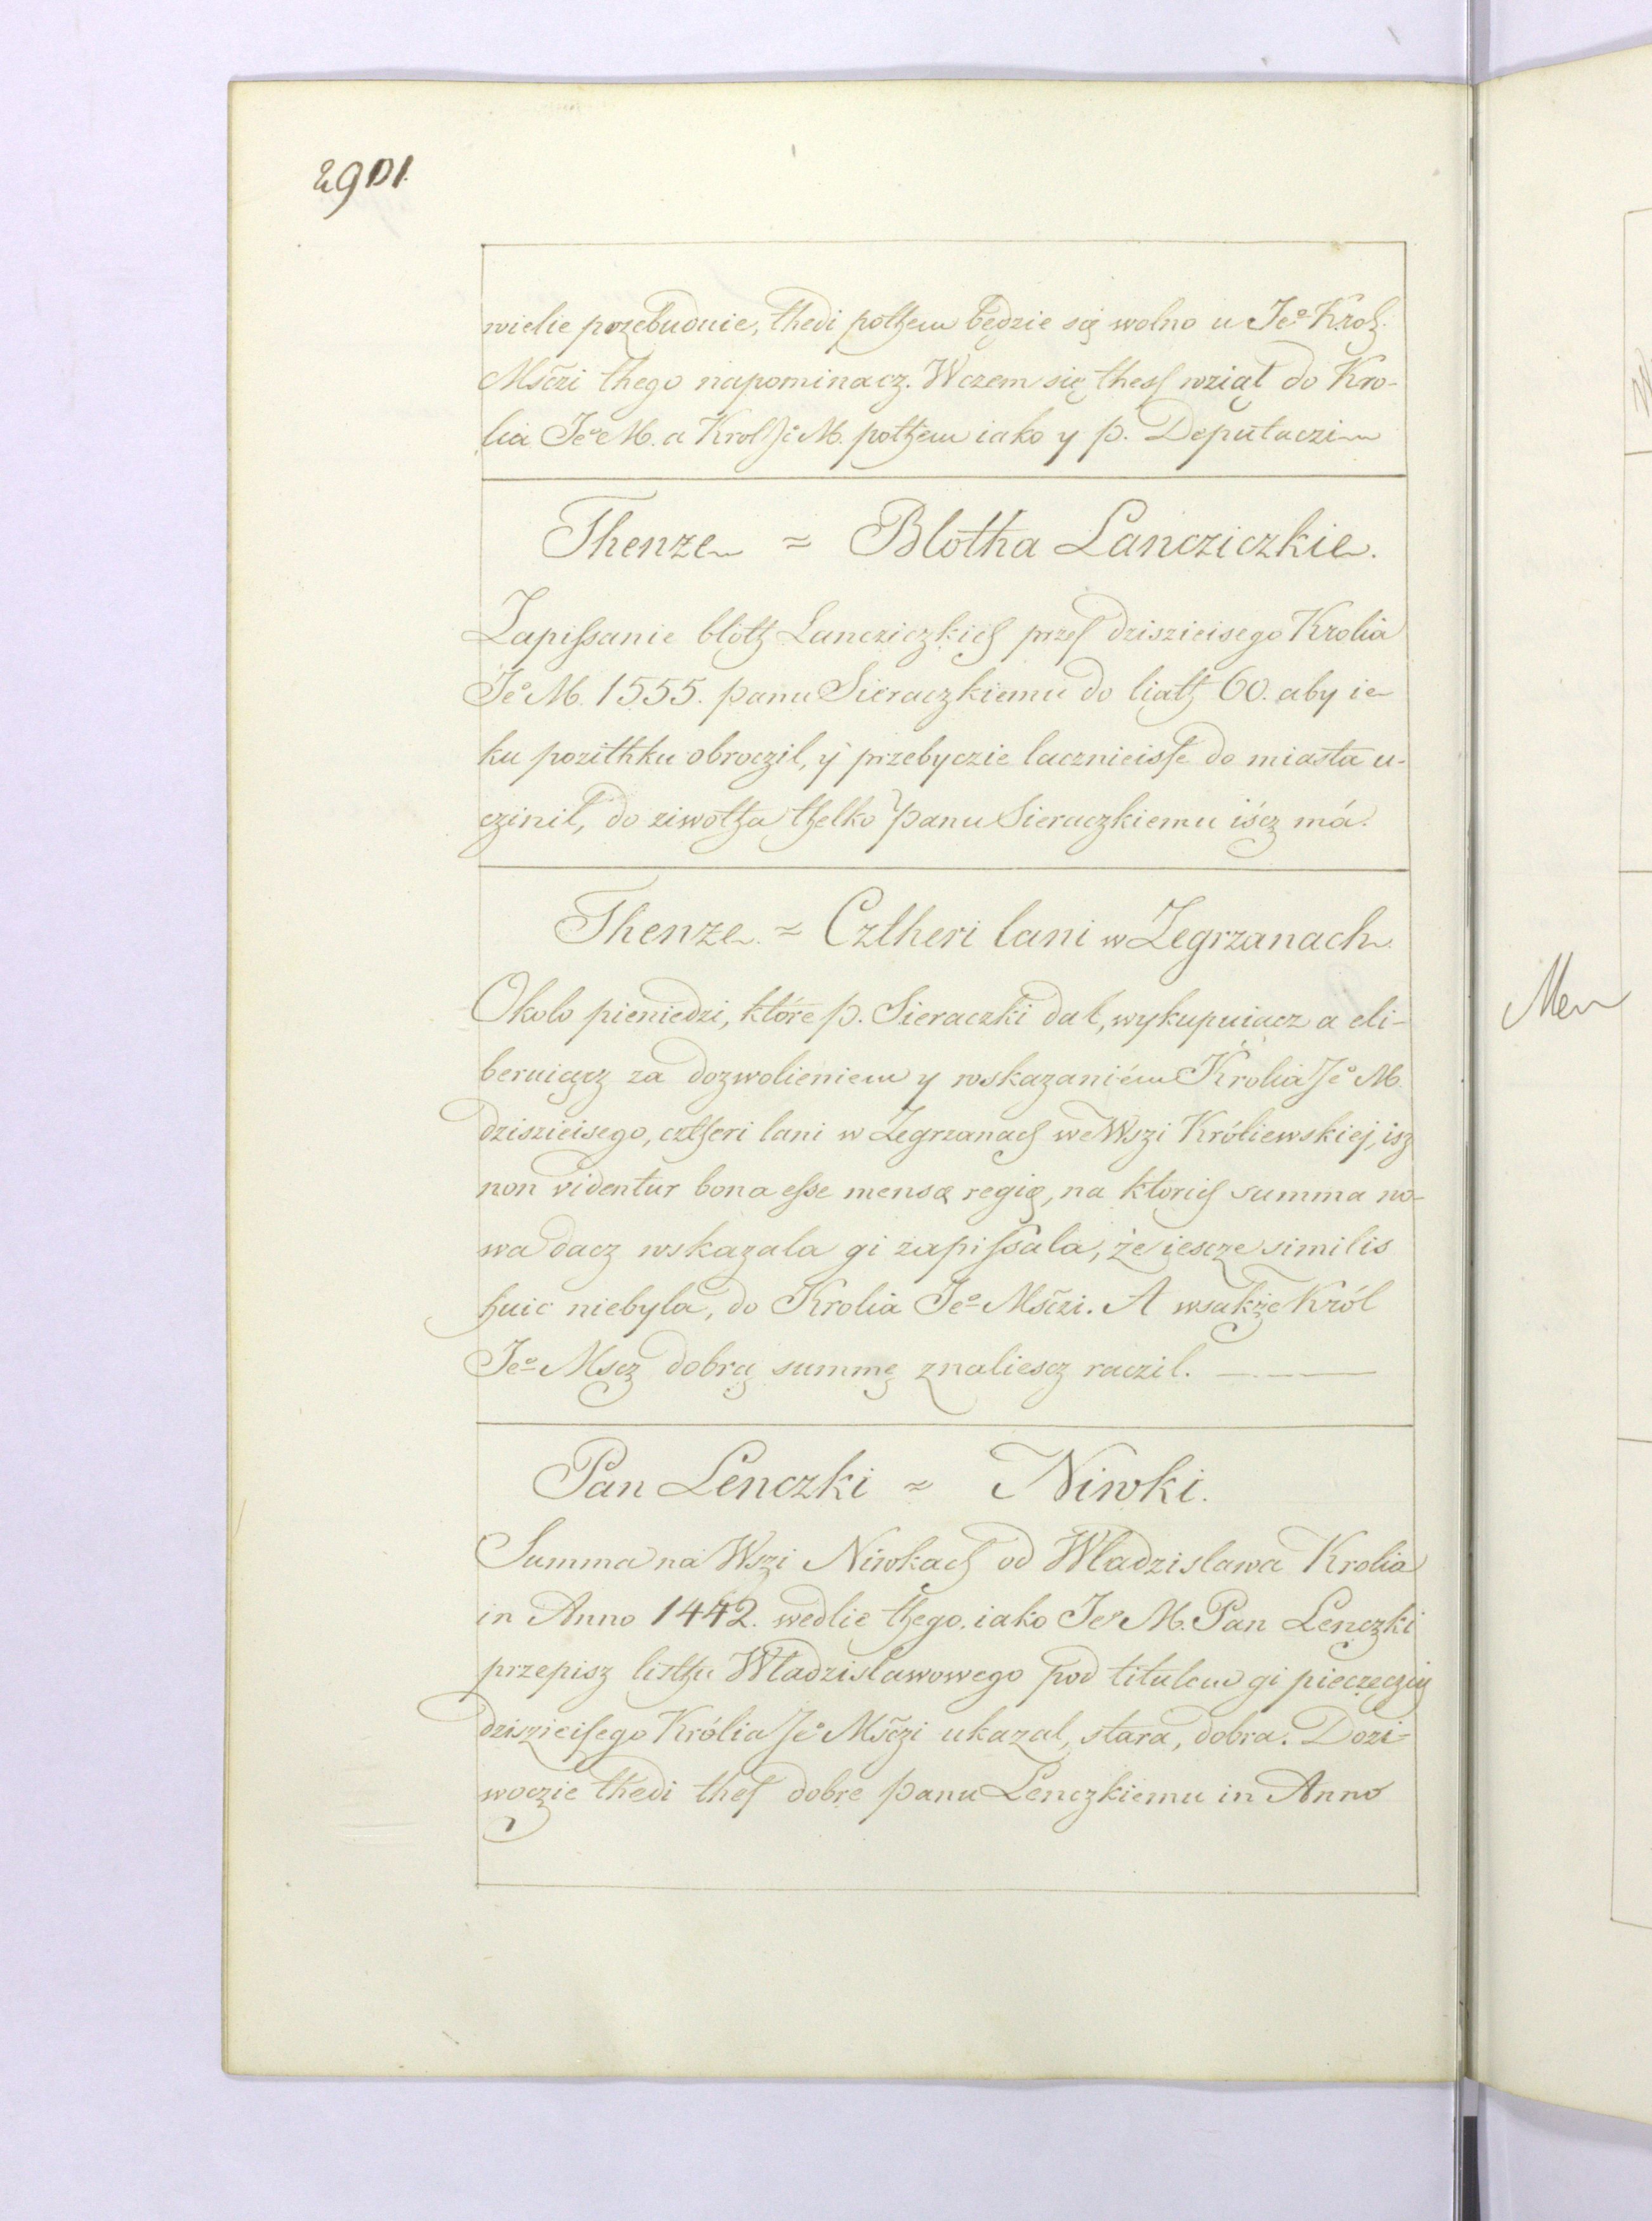 wielie przebuduie, thedi pothem będzie się wolno u Jeº Kroh.
Mśczi thego napominacz. W czem się thess wziął do Kro-
lia Jeº M. a Krol Jº M. pothem iako y p. Deputaczim
Thenze ≈ Blotha Lancziczkie.
Zapissanie bloth Lancziczkich przes dziszieisego Krolia
Jeº M. 1555. panu Sieraczkiemu do liath 60. aby ie
ku pozithku obroczil, ÿ przebyczie lacznieisse do miasta u-
czinil, do ziwotha thelko panu Sieraczkiemu iścz má.
Thenze ≈ Cztheri lani w Zegrzanach
Okolo pieniedzi, które p. Sieraczki dal, wykupuiącz a eli-
beruiącz za dozwolieniem y roskazaniém Krolia Jeº M.
dziszieisego, cztheri lani w Zegrzanach we Wszi Króliewskiej, isz
non videntur bona esse mensę regię, na ktorich summa no-
wa dacz wskazala gi zapissala, że iescze similis
huic niebyla, do Krolia Jeº Mśczi. A wsakże Król
Jeº Mscz dobrą summę znaliescz raczil.
Pan Lenczki ≈ Niwki.
Summa na Wszi Niwkach od Wladzislawa Krolia
in Anno 1442. wedlie thego, iako Jeº M. Pan Lenczki
przepisz listhu Wladzislawowego pod titulem gi pieczęczią
dziszieisego Królia Jeº Mśczi ukazal, stara, dobra. Dozi-
woczie thedi thes dobre panu Lenczkiemu in Anno
Men